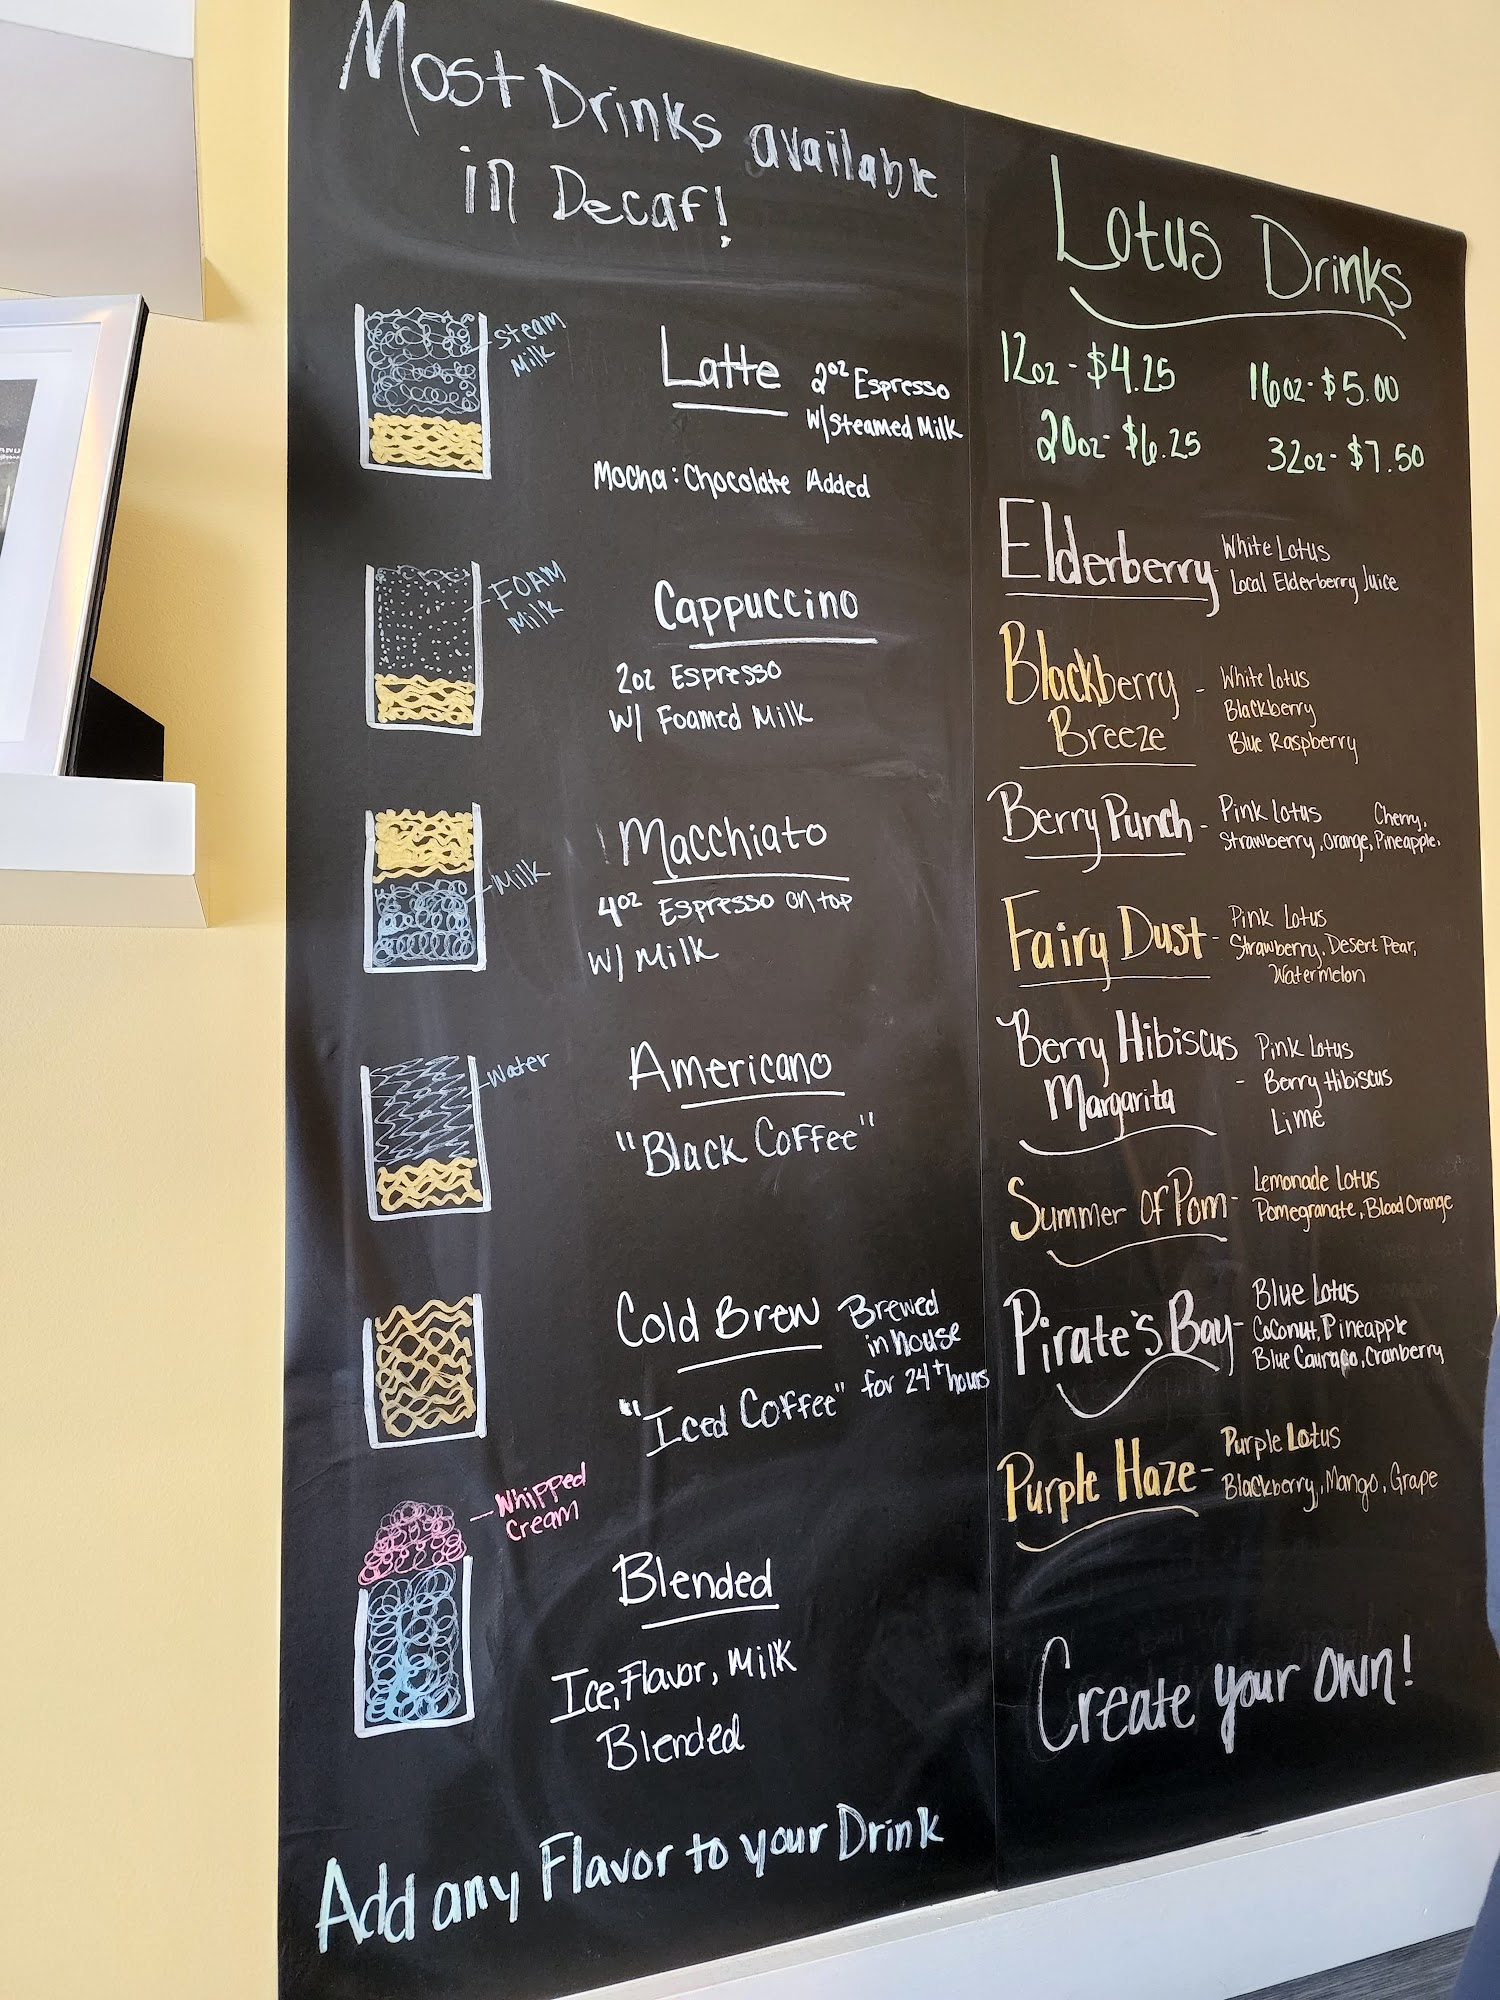 Most Drinks available
in Decaf!
Steam
Milk
Latte
2oz Espresso
w/Steamed Milk
Mocha: Chocolate Added
FOAM
Milk
Cappuccino
2oz Espresso
w/ Foamed Milk
Macchiato
Milk
4oz Espresso on top
w/ Milk
Water
Americano
"Black Coffee"
Cold Brew
Brewed
in house
for 24+ hours
"Iced Coffee"
Whipped
Cream
Blended
Ice, Flavor, Milk
Blended
Add any Flavor to your Drink
Lotus Drinks
12oz - $4.25
16oz - $5.00
20oz - $6.25
32oz - $7.50
Elderberry
White Lotus
Local Elderberry Juice
Blackberry
Breeze
- White lotus
Blackberry
Blue Raspberry
Berry Punch -
Pink lotus
Cherry,
Strawberry, Orange, Pineapple,
Fairy Dust -
Pink Lotus
Strawberry, Desert Pear,
Watermelon
Berry Hibiscus
Margarita
Pink Lotus
- Berry Hibiscus
Lime
Summer of Pom -
Lemonade Lotus
Pomegranate, Blood Orange
Pirate's Bay -
Blue Lotus
Coconut, Pineapple
Blue Cauraço, Cranberry
Purple Haze -
Purple Lotus
Blackberry, Mango, Grape
Create your own!